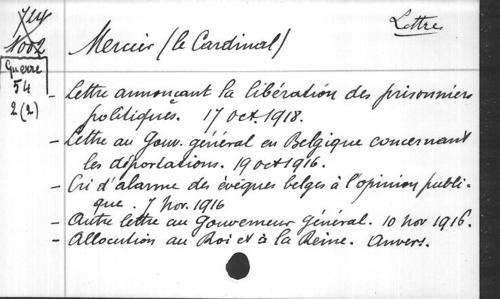 714
1002
Lettres
Mercier (le Cardinal)
Guerre
54
2(2)
- Lettre annonçant la libération des prisonniers
politiques. 17 oct. 1918.
- Lettre au Gouv. général en Belgique concernant
les déportations. 19 oct 1916.
- Cri d'alarme des évêques belges à l'opinion publi-
que. 7 Nov. 1916
- Autre lettre au Gouverneur Général. 10 nov 1916.
- Allocution au Roi et à la Reine. Anvers.